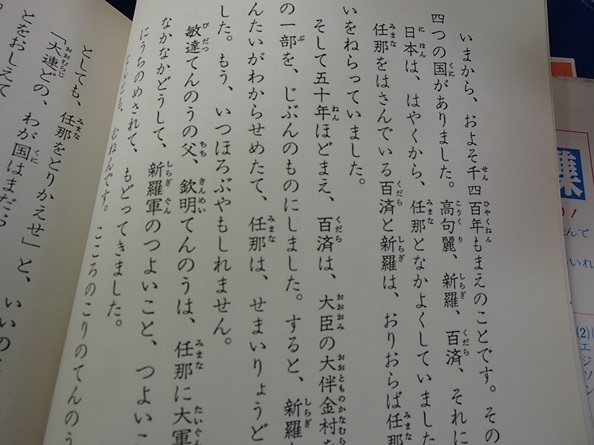 いまから、およそ千四百年もまえのことです。その
四つの国がありました。高句麗、新羅、百済、それに
日本は、はやくから、任那となかよくしていました
任那をはさんでいる百済と新羅は、おりおらば任那
いをねらっていました。
そして五十年ほどまえ、百済は、大臣の大伴金村を
の一部を、じぶんのものにしました。すると、新羅
んたいがわからせめたて、任那は、せまいりょうど
した。もう、いつほろぶやもしれません。
敏達てんのうの父、欽明てんのうは、任那に大軍
なかなかどうして、新羅軍のつよいこと、つよいこ
にうちのめされて、もどってきました。
むねんです。こころのこりのてんのう
としても、任那をとりかえせ」と、いいの
「大連どの、わが国はまだら
とをおしえて